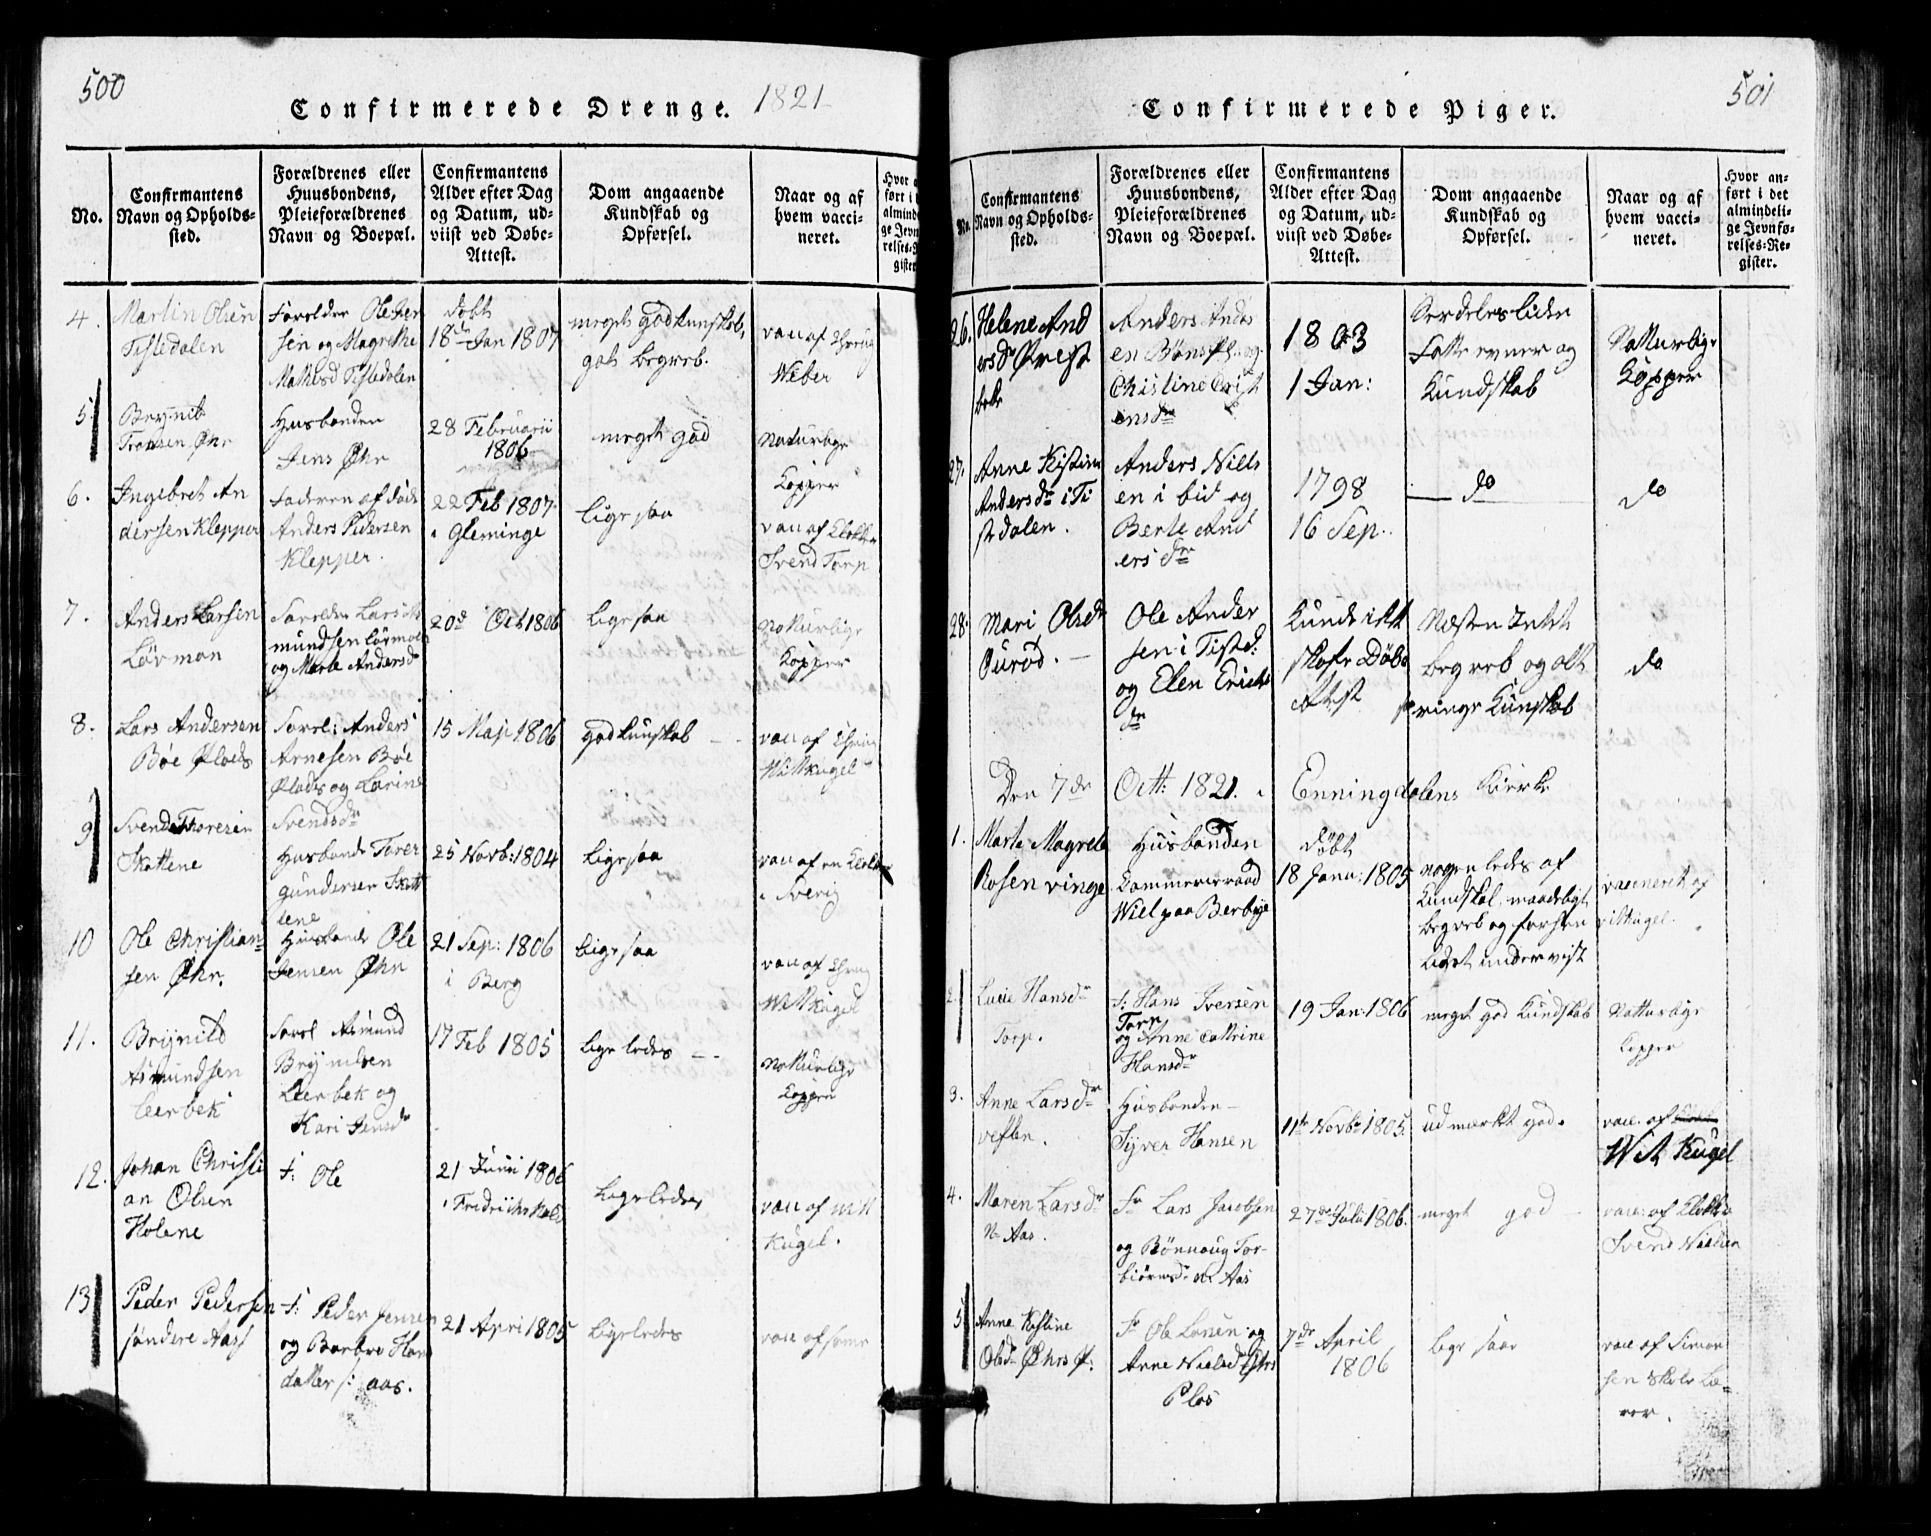 500
Confirmerede Drenge. 1821
No.
Confirmantens
Navn og Opholds-
sted.
Forældrenes eller
Huusbondens,
Pleieforældrenes
Navn og Boepæl.
Confirmantens
Alder efter Dag
og Datum, ud-
viist ved Døbe-
Attest.
Dom angaaende
Kundskab og
Opførsel.
Naar og af
hvem vacci-
neret.
4.
Martin Olsen
Tistedalen
Forelder Ole
sen og Magrethe
Mathisd Tistedalen
døbt
18de Jan 1807
meget god kunskab,
got begreb.
vac af
Weber
5
Brynild
Øhr
Husbonden
Jens Øhr
28 Februarii
1806
meget god
Naturlige
Kopper
6.
Ingebret An
dersen Klepper
Faderen af døde
Anders Pedersen
Klepper.
22 Feb 1807
i Gleminge
ligesaa
vac af Klokker
Svend Torp
7.
Anders Larsen
Lövman
Forelder Lars As
mundsen Lövman
og Marte Andersdr
20de Oct 1806
Ligesaa
Natturlige
Kopper
8.
Lars Andersen
Böe Plads
Forel: Anders
Arnesen Böe
Plads og Larine
Svendsdr
15 Maji 1806
god kunskab
vac af
Witkugel
9
Svend Thoresen
Skottene
Husbonde Torer
gundersen Skott
tene
25 Novb: 1804
Ligesaa
vac af en
i Sverig
10
Ole Christian-
sen Øhr.
Husbonde Ole
Jensen Øhn
21 Sep: 1806
i Berg
Ligesaa
vac af
Witkugel
11.
Brynild
Asmundsen
Leerbek
Forel Asmund
Brynildsen
Leerbek og
Kari Jensdr
17 Feb 1805
Lige ledes
Natturlige
Kopper
12.
Johan Christi
an Olsen
Holene
F: Ole
21 Juni 1806
i Fredrichshald
Ligeledes
vac af Witt
Kugel.
13
Peder Pedersen
söndere Aas
F: Peder Jensen
og Barbro Han
datter s: aas.
21 Apri 1805
Ligeledes
vac af samme
501
Confirmerede Piger.
No.
Confirmantens
Navn og Opholds-
sted.
Forældrenes eller
Huusbondens,
Pleieforældrenes
Navn og Boepæl.
Confirmantens
Alder efter Dag
og Datum, ud-
viist ved Døbe-
Attest.
Dom angaaende
Kundskab og
Opførsel.
Naar og af
hvem vacci-
neret.
Hvor an-
ført i det
almindeli-
ge Jevnfø-
relses-Re-
gister.
26.
Helene And
ersdr Prest
bek
Anders Anders
en Pl: og
Christine Crist
ensdr
1803
1 Jan:
Serdeles liden
Fatte evner og
Kundskab
Natturlige
Kopper
27.
Anne Kistine
Andersdr i Ti
stedalen.
Anders Niels
en i bid og
Berte And
ersdr
1798
16 Sep.
do
do
28.
Mari Olsdr
Buröd.
Ole Ander
sen i Tisted:
og Elen Erichs
dr
Kunde ikke
skafe Døbe
Attest
Næsten Intet
begreb og alt
ringe Kunskab
do
Den 7de Octt: 1821. i Enningdalens Kierke
1.
Marte Magrete
Rosenvinge
Husbonden
Cammerraad
Wiel paa Berbye
döbt
18 Janu: 1805
nogenledes af
Kundskab, maadeligt
begreb og forsten
Lidet undervist
vaccineret af
vittkugel.
2.
Lucie Hansdr
Torp.
F: Hans Iversen
Torp
og Anne Cathrine
Hansdr
19 Jan: 1806
meget god Kundskab
Natturlige
Kopper
3.
Anne Larsdr
veslen.
Husbonden
Syver Hansen
11te Novbr 1805.
udmærket god.
vac. af
Wit Kugel
4.
Maren Larsdr
N. Aas.
Fr Lars Jacobsen
og Rönnoug Tor-
biörnsdr n. Aas
27de Julii 1806.
meget god
vac: af Klokker
Svend Nielsen
5
Anne Kistine
Olsdr Øhrs P:
Fr Ole Larsen og
Anne Nielsd Øhrs
Plas
7de April
1806
lige saa
vac af Simon
sen Skole Læ-
rer.